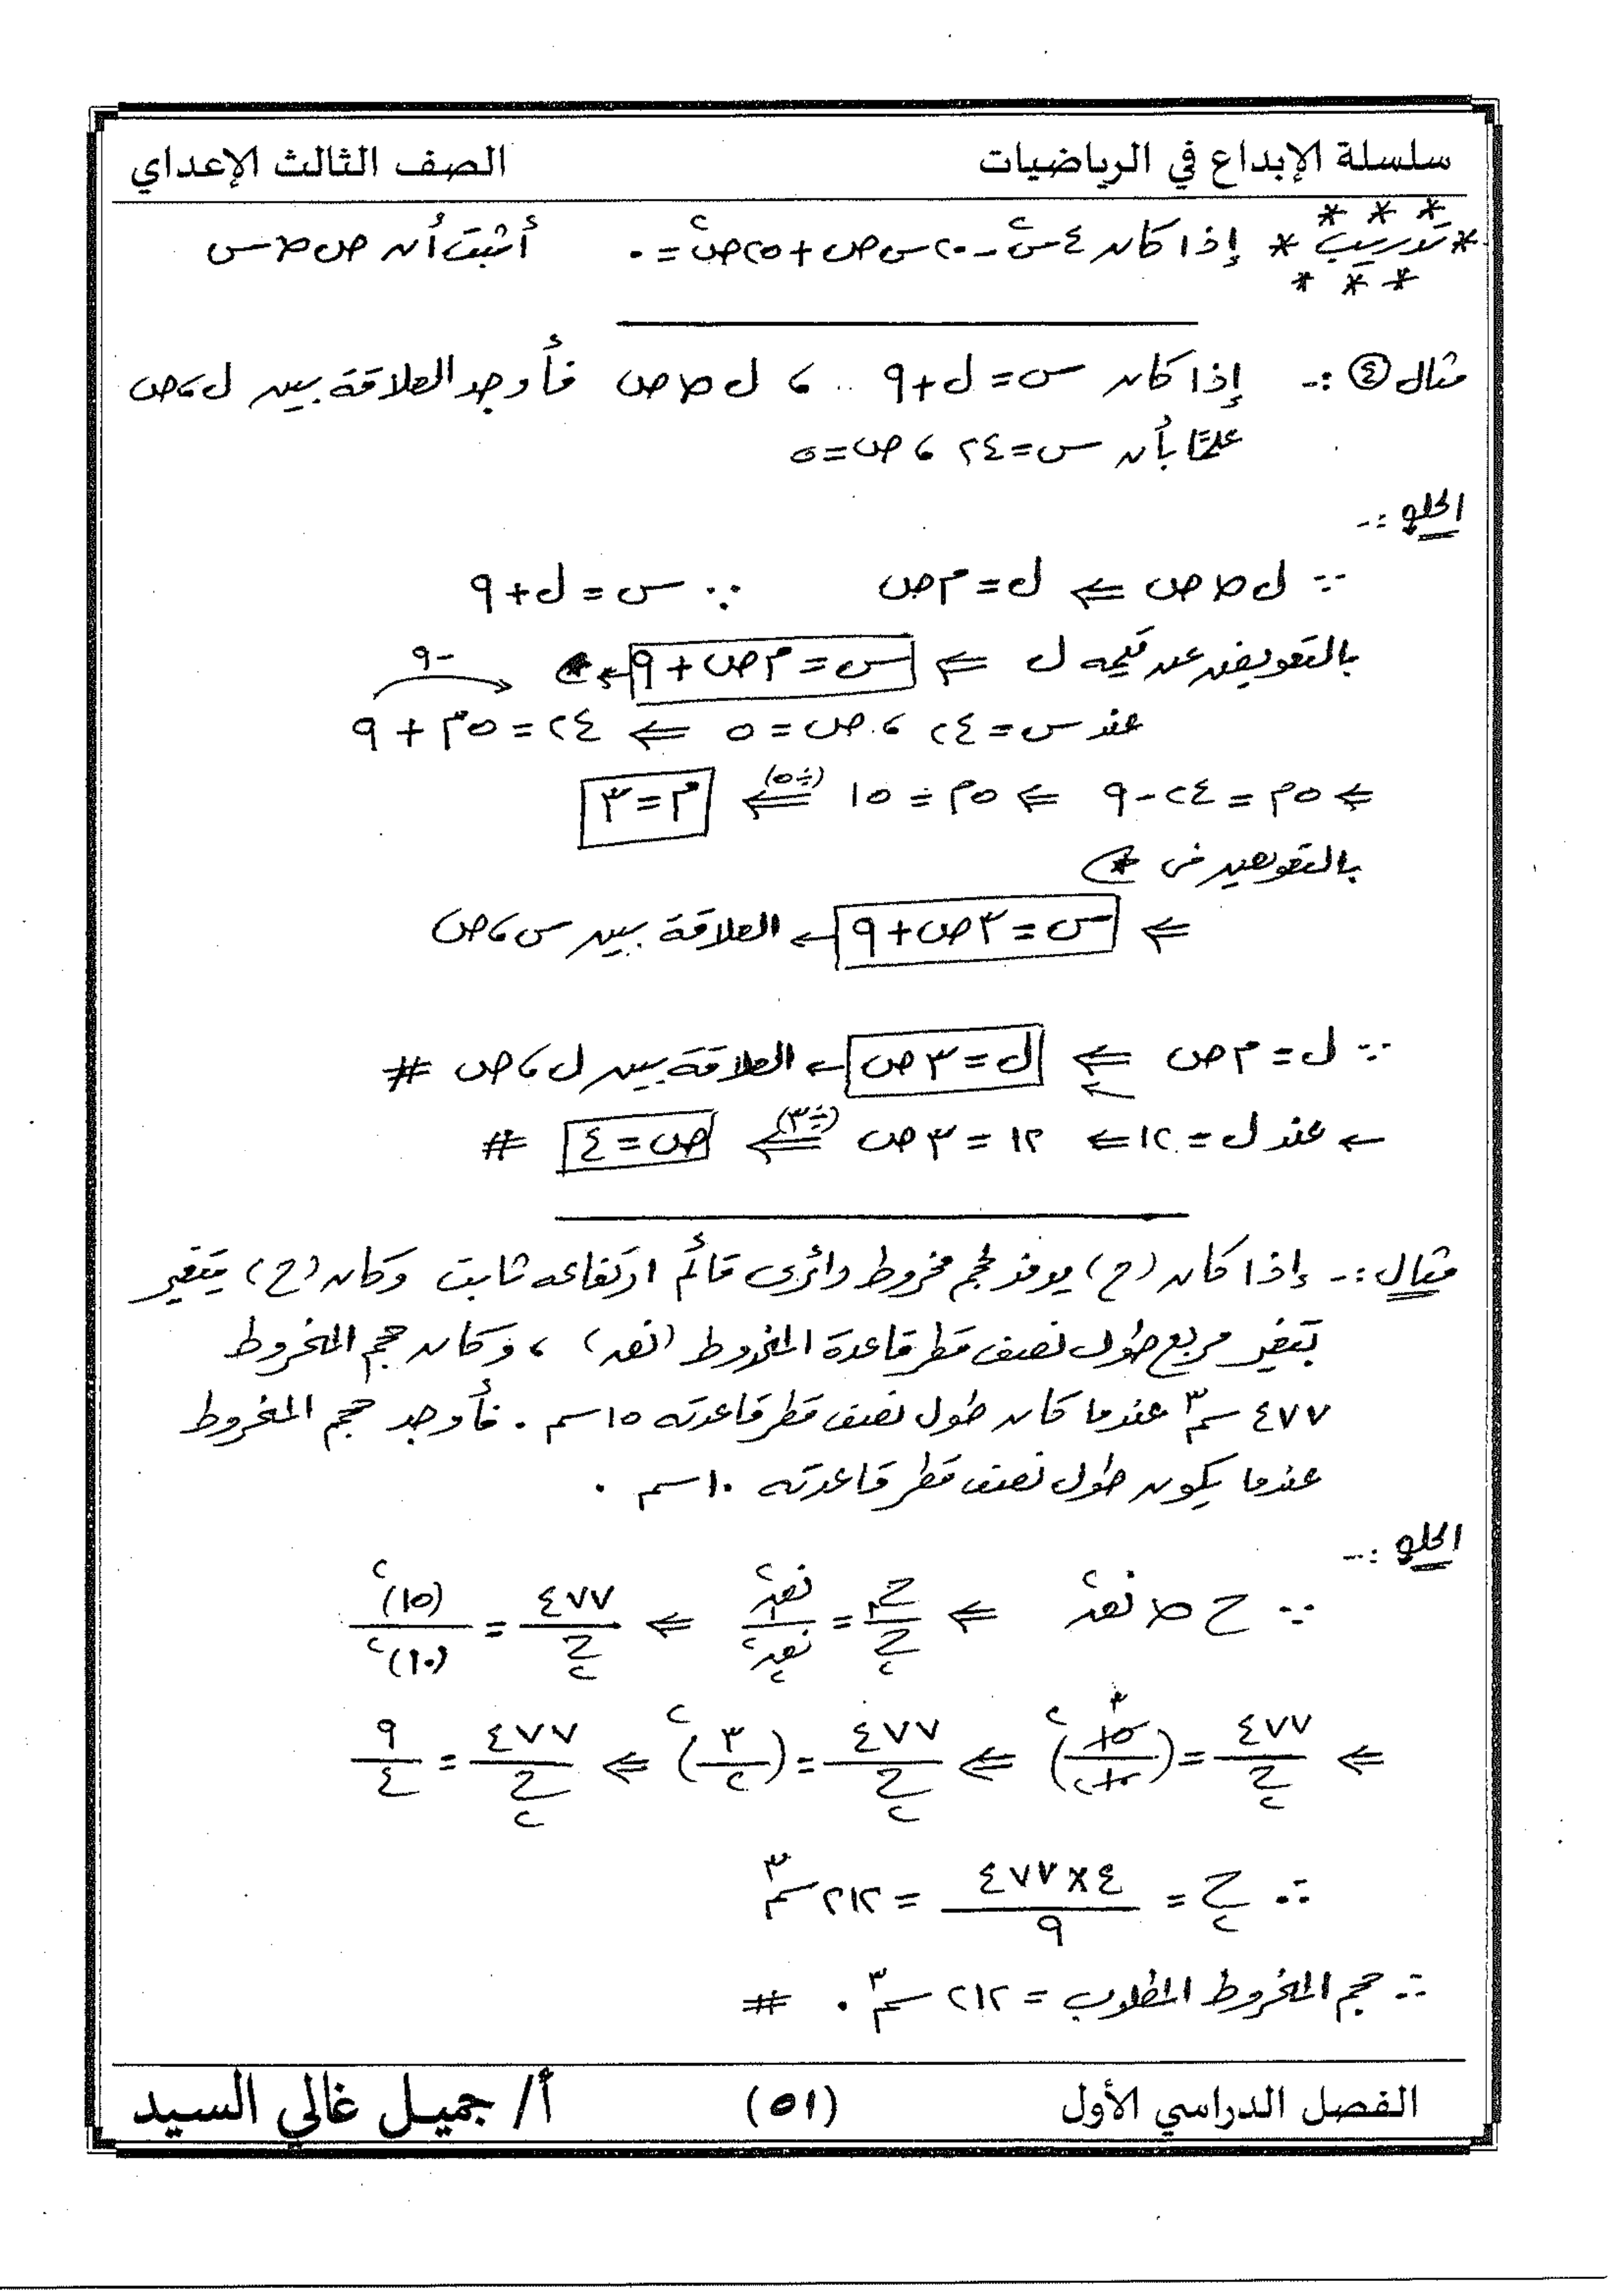 سلسلة الإبداع في الرياضيات الصف الثالث الإعداي
* تدريب * إذا كان ٤س٢ - ٢٠ س ص + ٢٥ ص٢ = ٠ أثبت أن ص ∝ س
مثال ④ :- إذا كان س = ل + ٩ ، ل ∝ ص فأوجد العلاقة بين ل ، ص
علمًا بأن س = ٢٤ ، ص = ٥
الحل :-
∵ ل ∝ ص ⇐ ل = م ص ∵ س = ل + ٩
بالتعويض عن قيمه ل ⇐ س = م ص + ٩ ← *
-٩
عند س = ٢٤ ، ص = ٥ ⇐ ٢٤ = ٥م + ٩
⇐ ٥م = ٢٤ - ٩ ⇐ ٥م = ١٥ ⇐ (÷٥) م = ٣
بالتعويض فى *
⇐ س = ٣ص + ٩ ← العلاقة بين س ، ص
∵ ل = م ص ⇐ ل = ٣ص ← العلاقة بين ل ، ص #
← عند ل = ١٢ ⇐ ١٢ = ٣ص ⇐ (÷٣) ص = ٤ #
مثال :- إذا كان (ح) يرمز لحجم مخروط دائرى قائم ارتفاعه ثابت وكان (ح) يتغير
بتغير مربع طول نصف قطر قاعدة المخروط (نق) ، وكان حجم المخروط
٤٧٧ سم٣ عندما كان طول نصف قطر قاعدته ١٥ سم . فأوجد حجم المخروط
عندما يكون طول نصف قطر قاعدته ١٠ سم .
الحل :-
∵ ح ∝ نق٢ ⇐ ح١/ح٢ = نق١٢/نق٢٢ ⇐ ٤٧٧/ح٢ = (١٥)٢/(١٠)٢
⇐ ٤٧٧/ح٢ = (١٥/١٠)٢ ⇐ ٤٧٧/ح٢ = (٣/٢)٢ ⇐ ٤٧٧/ح٢ = ٩/٤
∴ ح٢ = ٤٧٧×٤/٩ = ٢١٢ سم٣
∴ حجم المخروط المطلوب = ٢١٢ سم٣ . #
الفصل الدراسي الأول (٥١) أ/ جميل غالي السيد